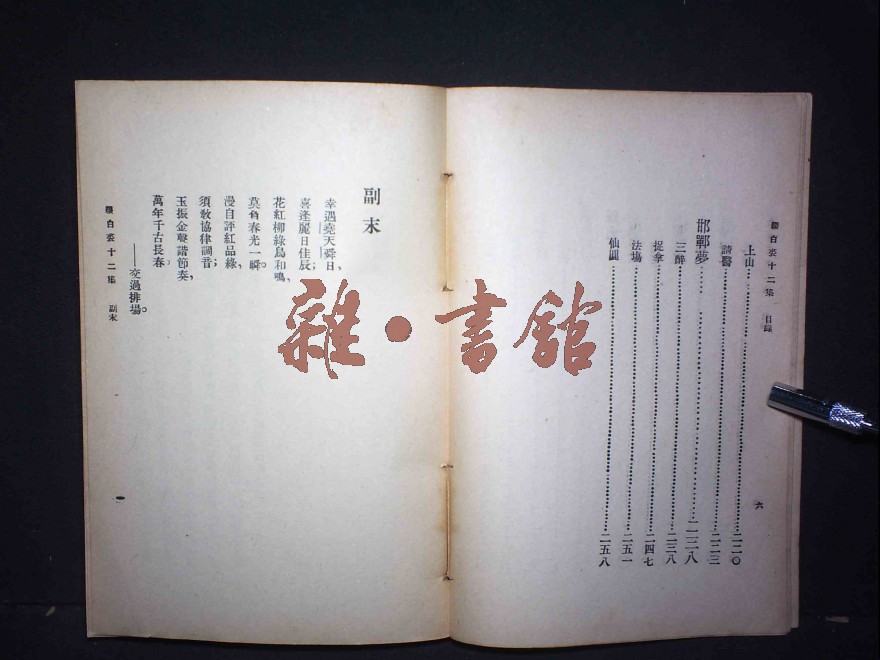 綴白裘十二集 目錄
六
上山……二二〇
請醫……二二三
邯鄲夢……二三八
三醉……二三八
捉拿……二四七
法場……二五一
仙圓……二五八
副末
幸遇堯天舜日、
喜逢麗日佳辰；
花紅柳綠鳥和鳴、
莫負春光一瞬。
漫自評紅品綠、
須教協律調音；
玉振金聲諧節奏、
萬年千古長春。
——交過排場。
綴白裘十二集 副末
一
雜·書館